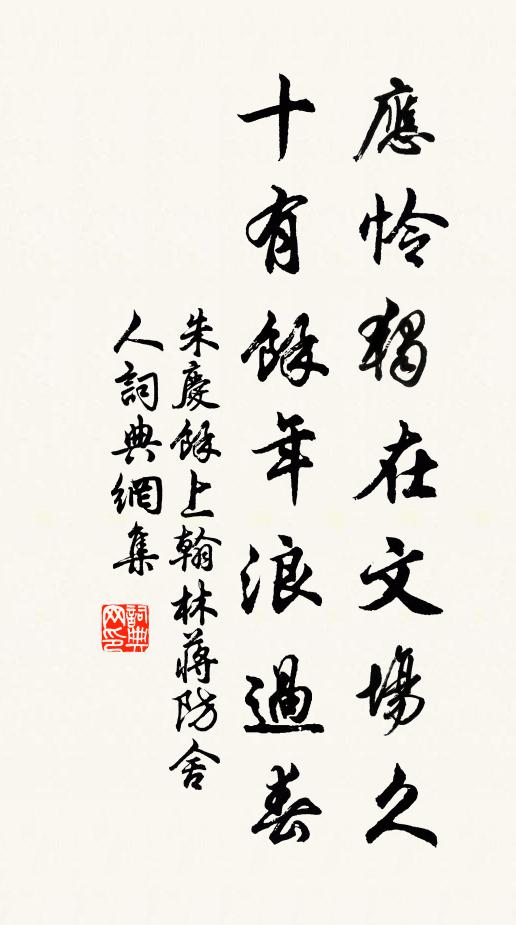 應怜獨在文場久
十有餘年浪過春
朱慶餘上翰林蔣防舍
人詞典網集
詞典
网印